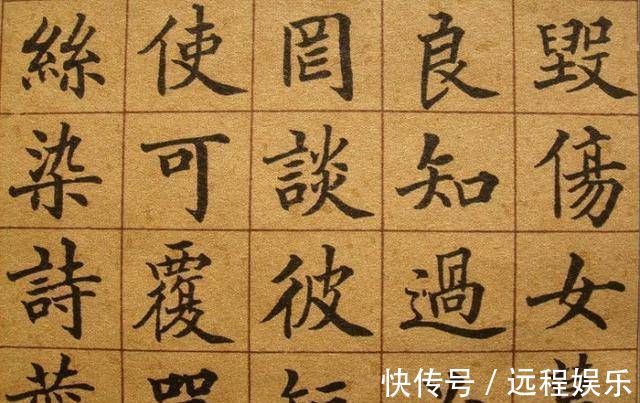 毀傷女
良知過
罔談彼
使可覆
絲染詩
快传号 / 远程娱乐